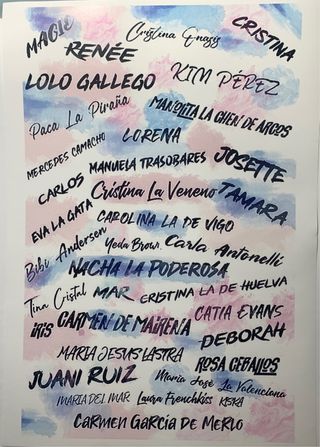 MAGIE Cristina Onassis CRISTINA
RENÉE
LOLO GALLEGO KIM PÉREZ
Paca La Piraña MANOLITA LA CHEN DE ARCOS
MERCEDES CAMACHO LORENA
MANUELA TRASOBARES JOSETTE
CARLOS Cristina La Veneno TAMARA
EVA LA GATA CAROLINA LA DE VIGO
Bibi Andersen Yeda Brown Carla Antonelli
NACHA LA PODEROSA
Tina Cristal MAR CRISTINA LA DE HUELVA
IRIS CARMEN DE MAIRENA CATIA EVANS
DEBORAH
MARIA JESUS LASTRA ROSA CEBALLOS
JUANI RUIZ Maria José La Valenciana
MARIA DEL MAR Laura Frenchkiss KISKA
CARMEN GARCÍA DE MERLO